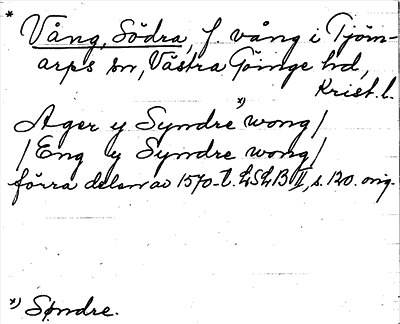 * Vång, Södra, f. vång i Tjörn-
arps sn, Västra Göinge hd,
Krist. l.
Ager y Syndre *) wong/
/Eng y Syndre wong/
förra delen av 1570-t. LSLB II, s. 120. orig.
*) Søndre.